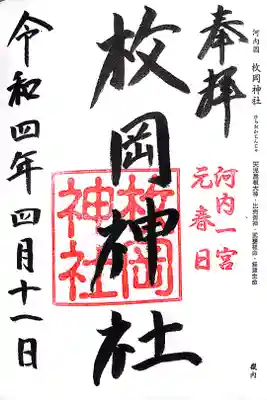 奉拝
河内國 枚岡神社
ひらおかじんじゃ
河内一宮
元春日
枚岡神社
枚岡
神社
令和四年四月十一日